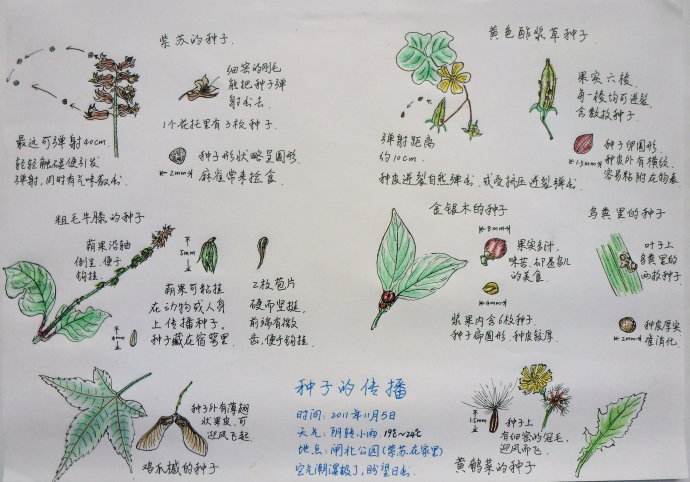 紫苏的种子
细密的刚毛
能把种子弹
射出去.
1个花托里有3枚种子.
最远可弹射40cm.
轻轻触碰便引发
弹射,同时有气味散出
种子形状略呈圆形
麻雀常来捡食.
2mm
黄色酢浆草种子
果实六棱
每一棱均可迸裂
含数枚种子.
弹射距离
约10cm.
种皮迸裂自然弹出,或受挤压迸裂弹出.
种子卵圆形
种皮外有横纹
容易粘附在物表
1.5mm
粗毛牛膝的种子
蒴果沿轴
倒生,便于
钩挂.
5mm
蒴果可黏挂
在动物或人身
上传播种子,
种子藏在宿萼里.
2枚苞片
硬而坚挺,
前端有微
齿,便于钩挂.
金银木的种子
8mm
果实多汁,
味苦,却是鸟儿
的美食.
4mm
浆果内含6枚种子.
种子扁圆形,种皮较厚.
鸟粪里的种子
叶子上
鸟粪里的
两枚种子.
种皮厚实
难消化.
2mm
种子外有薄翅
状果皮,可
迎风飞起
鸡爪槭的种子
种子的传播
时间:2011年11月5日
天气:阴转小雨,19℃~24℃
地点:闸北公园(紫苏在家里)
空气潮湿极了,盼望日出.
1.5mm
种子上
有细密的冠毛,
迎风而飞.
黄鹌菜的种子